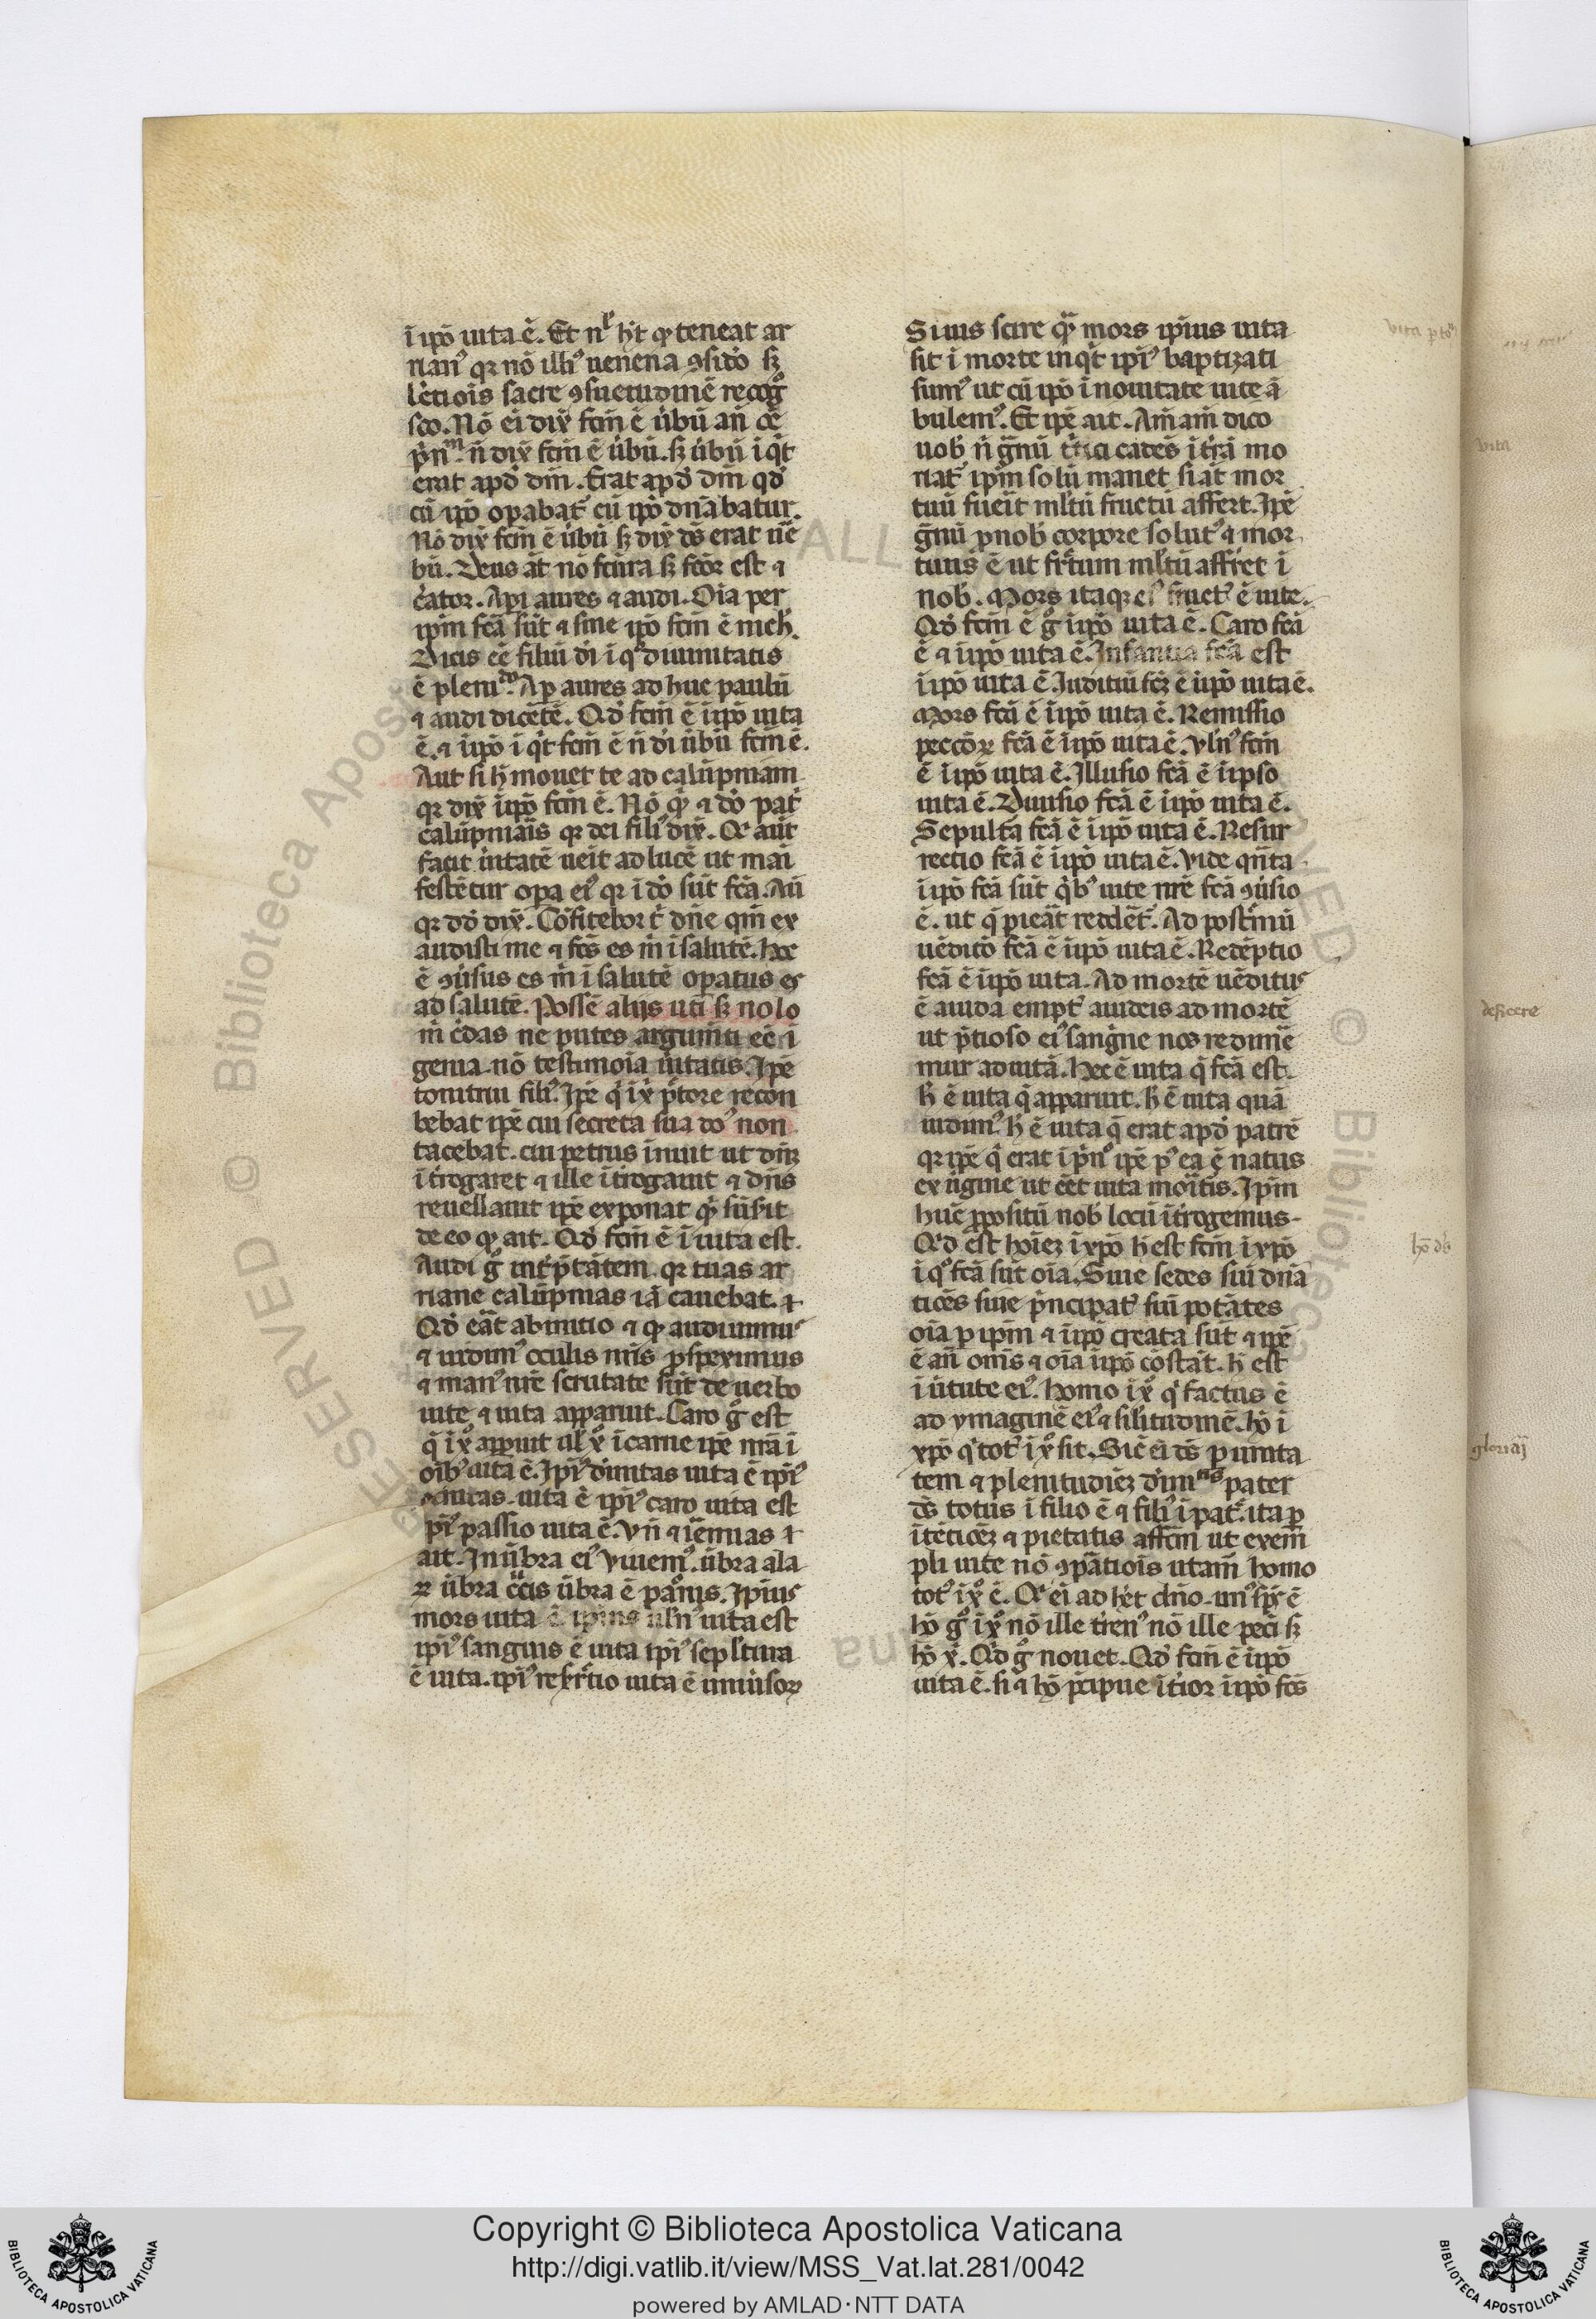 ī ip̄o uita ē. Et nͥ h̄t qͥ teneat ar
rian⁹ qꝛ nō illi⁹ uenena ꝯsid̓o sꝫ
lc̓tiōis sacre ꝯsuetudinē recogͦ
sco. Nō ei dix̄ fcm̄ ē ub̄ū an̄ ēē
p̓nᵐ. n̄ dix̄ fcm̄ ē ub̄ū. sꝫ ub̄ū ī qͥ
erat apd̓ dm̄. Erat apd̓ dm̄ qd̓
cū ip̄o opabat̓ cū ip̄o dn̄abatur.
Nō dix̄ fcm̄ ē ub̄ū sꝫ dix̄ ds̄ erat ue
bū. Deus āt nō fc̄ura sꝫ fc̄or est ⁊
c̓ator. Api aures ⁊ audi. Oīa per
ip̄m fc̄ā sūt ⁊ sine ip̄o fcm̄ ē nich̓.
Dicis ēē filiū dī ī qͦ diuinitatis
ē pleniᵗᵒ. Ap aures ad huc paulū
⁊ audi dicētē. Qd̓ fcm̄ ē ī ip̄o uita
ē. ⁊ ī ip̄o ī qͥ fcm̄ ē n̄ dī ub̄ū fcm̄ ē.
Aut si h̓ mouet te ad calūpniam
qꝛ dix̄ ī ip̄o fcm̄ ē. Nō qͥ ⁊ dō pat̓
calūpniaīs qꝛ dei fili⁹ dix̄. Qͥ aūt
facit ūitatē ueīt ad lucē ut mai
festētur opa ei⁹ qꝛ ī dō sūt fc̄ā. Au
qꝛ dd̓ dix̄. Cōfitebor t̓ dn̄e qm̄ ex
audisti me ⁊ fcs̄ es m̄ ī salutē. hoc
ē ꝯuersus es m̄ ī salutē opatus es
ad salutē. Possē alijs uti sꝫ nolo
m̄ c̓das ne putes argum̄ti ēē ī
genia nō testimōia ūitatis. Ip̄e
tonitrui fili⁹. Ip̄e qͥ ī x̄ p̓tore recon
bebat ip̄e cui secreta sua do⁹ non
tacebat. cui petrus inuit ut dn̄ꝫ
ī t̓rogaret ⁊ ille ī t̓rogauit ⁊ dn̄s
reuellauit ip̄e exponat qͥ sūsit
de eo qͥ ait. Qd̓ fcm̄ ē ī uita est.
Audi gͦ int̓p̓tātem qꝛ tuas ar
riane calūpnias iā cauebat. ⁊
Qd̓ eāt ab initio ⁊ qͥ audiuimus
⁊ uidim⁹ oculis nr̄is p̓speximus
⁊ man⁹ nr̄e scrutate sūt de uerbo
uite ⁊ uita apparuit. Caro gͦ est
q̄ ī xͦ apparuit ul̓ xͦ ī carne ip̄e nr̄ā ī
oīb⁹ uita ē. Ip̄i⁹ d̓initas uita ē ip̄i⁹
uita ē ip̄i⁹ caro uita est
p̄i⁹ passio uita ē. Vn̄ ⁊ iēmias
ait. In ūbra ei⁹ viuem⁹. ūbra ala
ꝝ ūbra c̓cis ūbra ē pāōnis. Ipius
mors uita ē ipius uln⁹ uita est
ip̄i⁹ sanguis ē uita ip̄i⁹ sepl̓tura
ē uita. ip̄i⁹ resr̄ctio uita ē uniūsoꝝ
Si uis scire qͣ mors ip̄ius uita
sit ī morte inqͥt ip̄i⁹ baptizati
sum⁹ ut cū ip̄o ī nouitate uite ā
bulem⁹. Et ip̄e ait. Am̄ am̄ dico
uob̓ n̄ gͣnū t̓tici cadēs ī t̓rā mo
riat̓ ip̄m solū manet si āt mor
tuū fueīt ml̓tū fructū affert. Ip̄e
gͣnū p̄ nob̓ corpore solut⁹ ⁊ mor
tuus ē ut fr̄ctum ml̓tū affr̄et ī
nob̓. Mors itaqꝫ ei⁹ fruct⁹ ē uite.
Qd̓ fcm̄ ē gͦ ī ip̄o uita ē. Caro fc̄ā
ē ⁊ ī ip̄o uita ē. Infantia fc̄ā est
ī ip̄o uita ē. Iuditiū fcꝫ ē ī ip̄o uita ē.
Mors fc̄ā ē ī ip̄o uita ē. Remissio
peccōꝝ fc̄ā ē ī ip̄o uita ē. Vln⁹ fcm̄
ē ī ip̄o uita ē. Illusio fc̄ā ē ī ipso
uita ē. Diuisio fc̄ā ē ī ip̄o uita ē.
Sepult̓a fc̄ā ē ī ip̄o uita ē. Resur
rectio fc̄ā ē ī ip̄o uita ē. Vide qn̄ta
ī ip̄o fc̄ā sūt qͥb⁹ uite nr̄e fc̄ā ꝯūsio
ē. ut q̄ pieāt reddēt̓. Ad post̓mū
uēditō fc̄ā ē ī ip̄o uita ē. Redēptio
fc̄ā ē ī ip̄o uita. Ad mortē uēditus
ē auida empt̓ auideis ad mortē
ut p̓tioso ei⁹ sang̓ne nos redim̄e
mur ad uitā. Hec ē uita q̄ fc̄ā est.
h̓ ē uita q̄ apparuit. h̓ ē uita quā
uidim⁹. h̓ ē uita q̄ erat apd̓ patrē
qꝛ ip̄e qͥ erat ī p̓nͦ ip̄e p⁹ ea ē natus
ex ūgine ut ēet uita moītis. Ip̄m
huc ꝓpositū nob̓ locū īt̓rogemus.
Qd̓ est hoīeꝫ ī xp̄o h̓ est fcm̄ ī xp̄o
ī qͦ fc̄ā sūt oīa. Siue sedes siū dn̄ā
tiōes siue p̓ncipat⁹ siū potātes
oīa p̱ ip̄m ⁊ ī ip̄o creata sūt ⁊ ip̄e
ē an̄ om̄s ⁊ oīa ī ip̄o cōstāt. h̓ est
ī ūtute ei⁹. Homo ī xͦ qͥ factus ē
ad ymaginē ei⁹ ⁊ sil̓itudinē. hō ī
xp̄o qͥ tot⁹ ī xͦ sit. Sic̄ ei ds̄ p̱ unita
tem ⁊ plenitudīeꝫ diuiⁿⁱˢ pater
ds̄ totus ī filio ē ⁊ fili⁹ ī pat̓. ita p̱
ītētiōeꝫ ⁊ pietatis affcm̄ ut exem̄
pli uite nō ꝯpāatiōis utam̄ homo
tot⁹ ī xͦ ē. Qͥ ei ad h̓et dn̄o un⁹ sp̄s ē
hō gͦ ī xͦ nō ille t̓ren⁹ nō ille pec̄i sꝫ
hō x̄. Qd̓ gͦ nouet. Qd̓ fcm̄ ē ī ip̄o
uita ē. si ⁊ hō p̓cipue īt̓ior ī ip̄o fcs̄
vita
hō d̓s
Copyright © Biblioteca Apostolica Vaticana
http://digi.vatlib.it/view/MSS_Vat.lat.281/0042
powered by AMLAD · NTT DATA
BIBLIOTECA APOSTOLICA VATICANA
BIBLIOTECA APOSTOLICA VATICANA